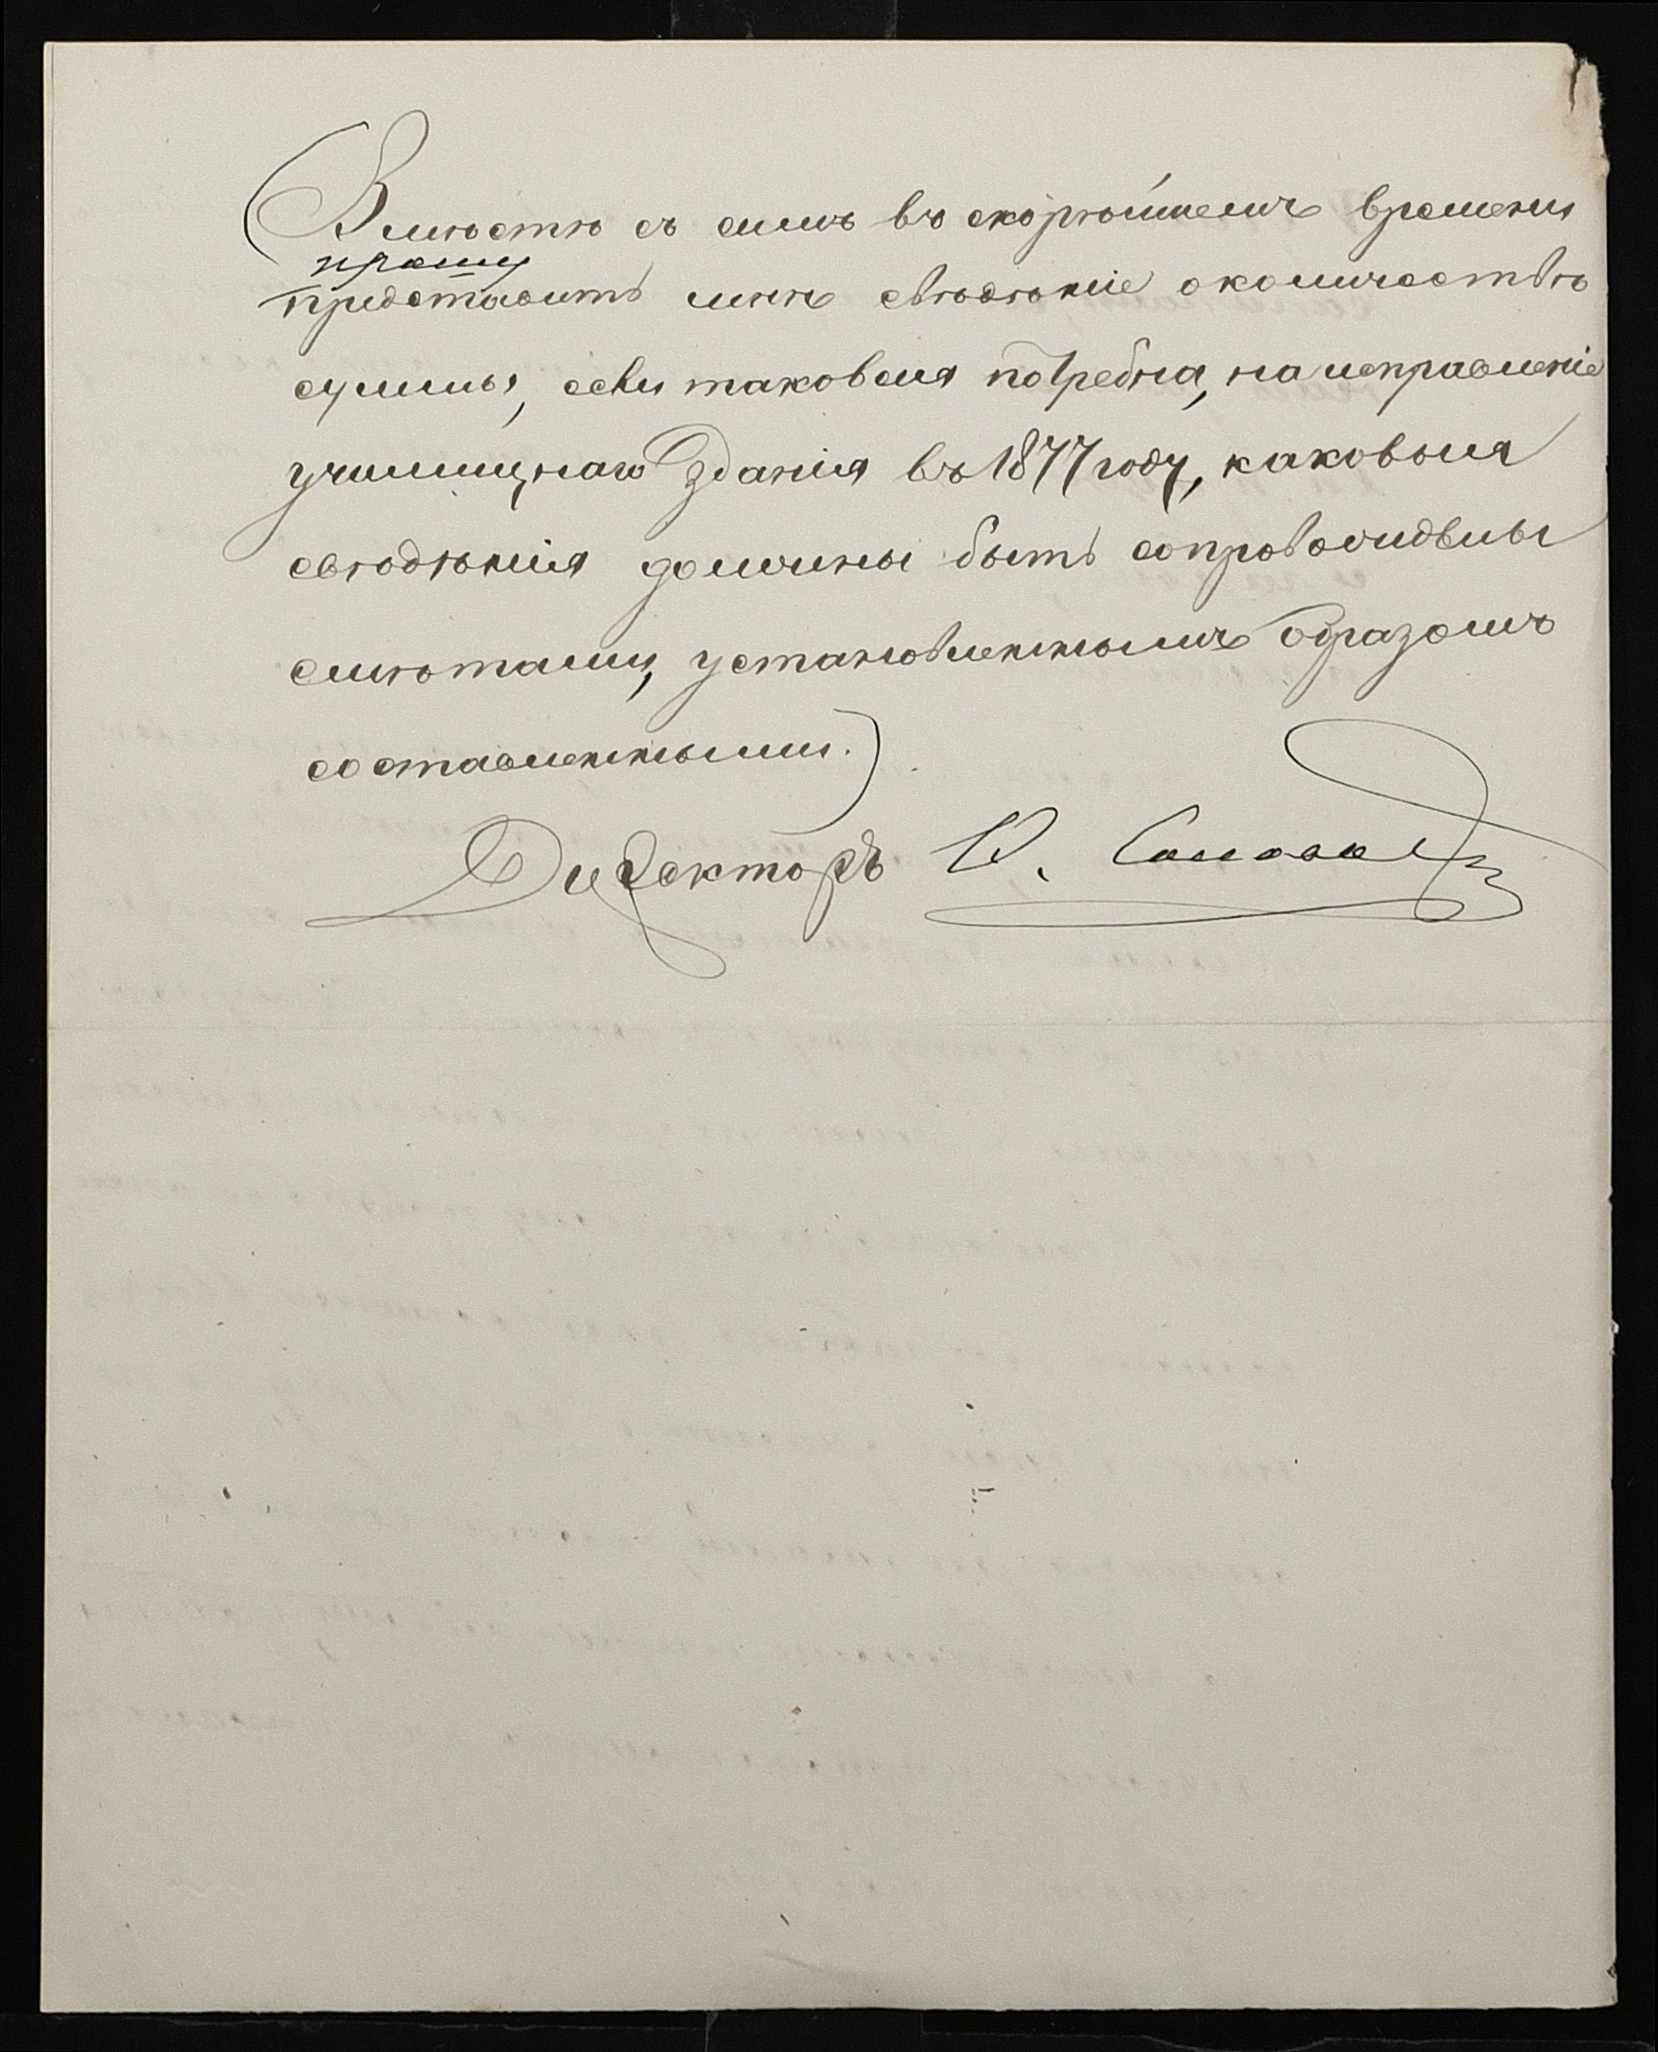 (Вмѣстѣ съ симъ въ скорѣйшемъ времени
прошу
представить мнѣ свѣдѣніе о количествѣ
суммы, если таковая потребна, на исправленіе
училищнаго зданія въ 1877 году, каковыя
свѣдѣнія должны быть сопровождены
смѣтами, установленнымъ образомъ
составленными.)
Директоръ